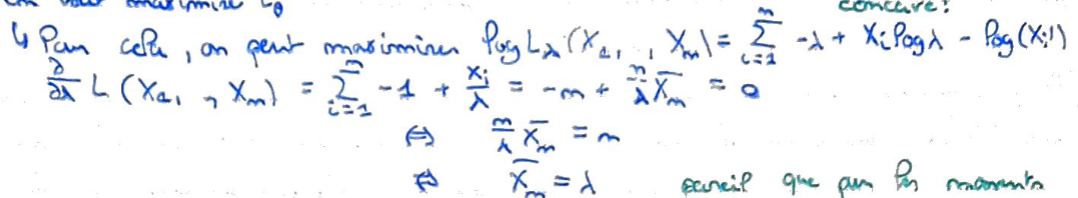 on veut maximise L_θ
concave!
↳ Pour cela, on peut maximiser log L_λ(X_1, , X_n) = Σ_{i=1}^{n} -λ + X_i log λ - log(X_i!)
∂/∂λ L(X_1, , X_n) = Σ_{i=1}^{n} -1 + X_i/λ = -n + n/λ X̄_n = 0
⇔ n/λ X̄_n = n
⇔ X̄_n = λ pareil que par les moments